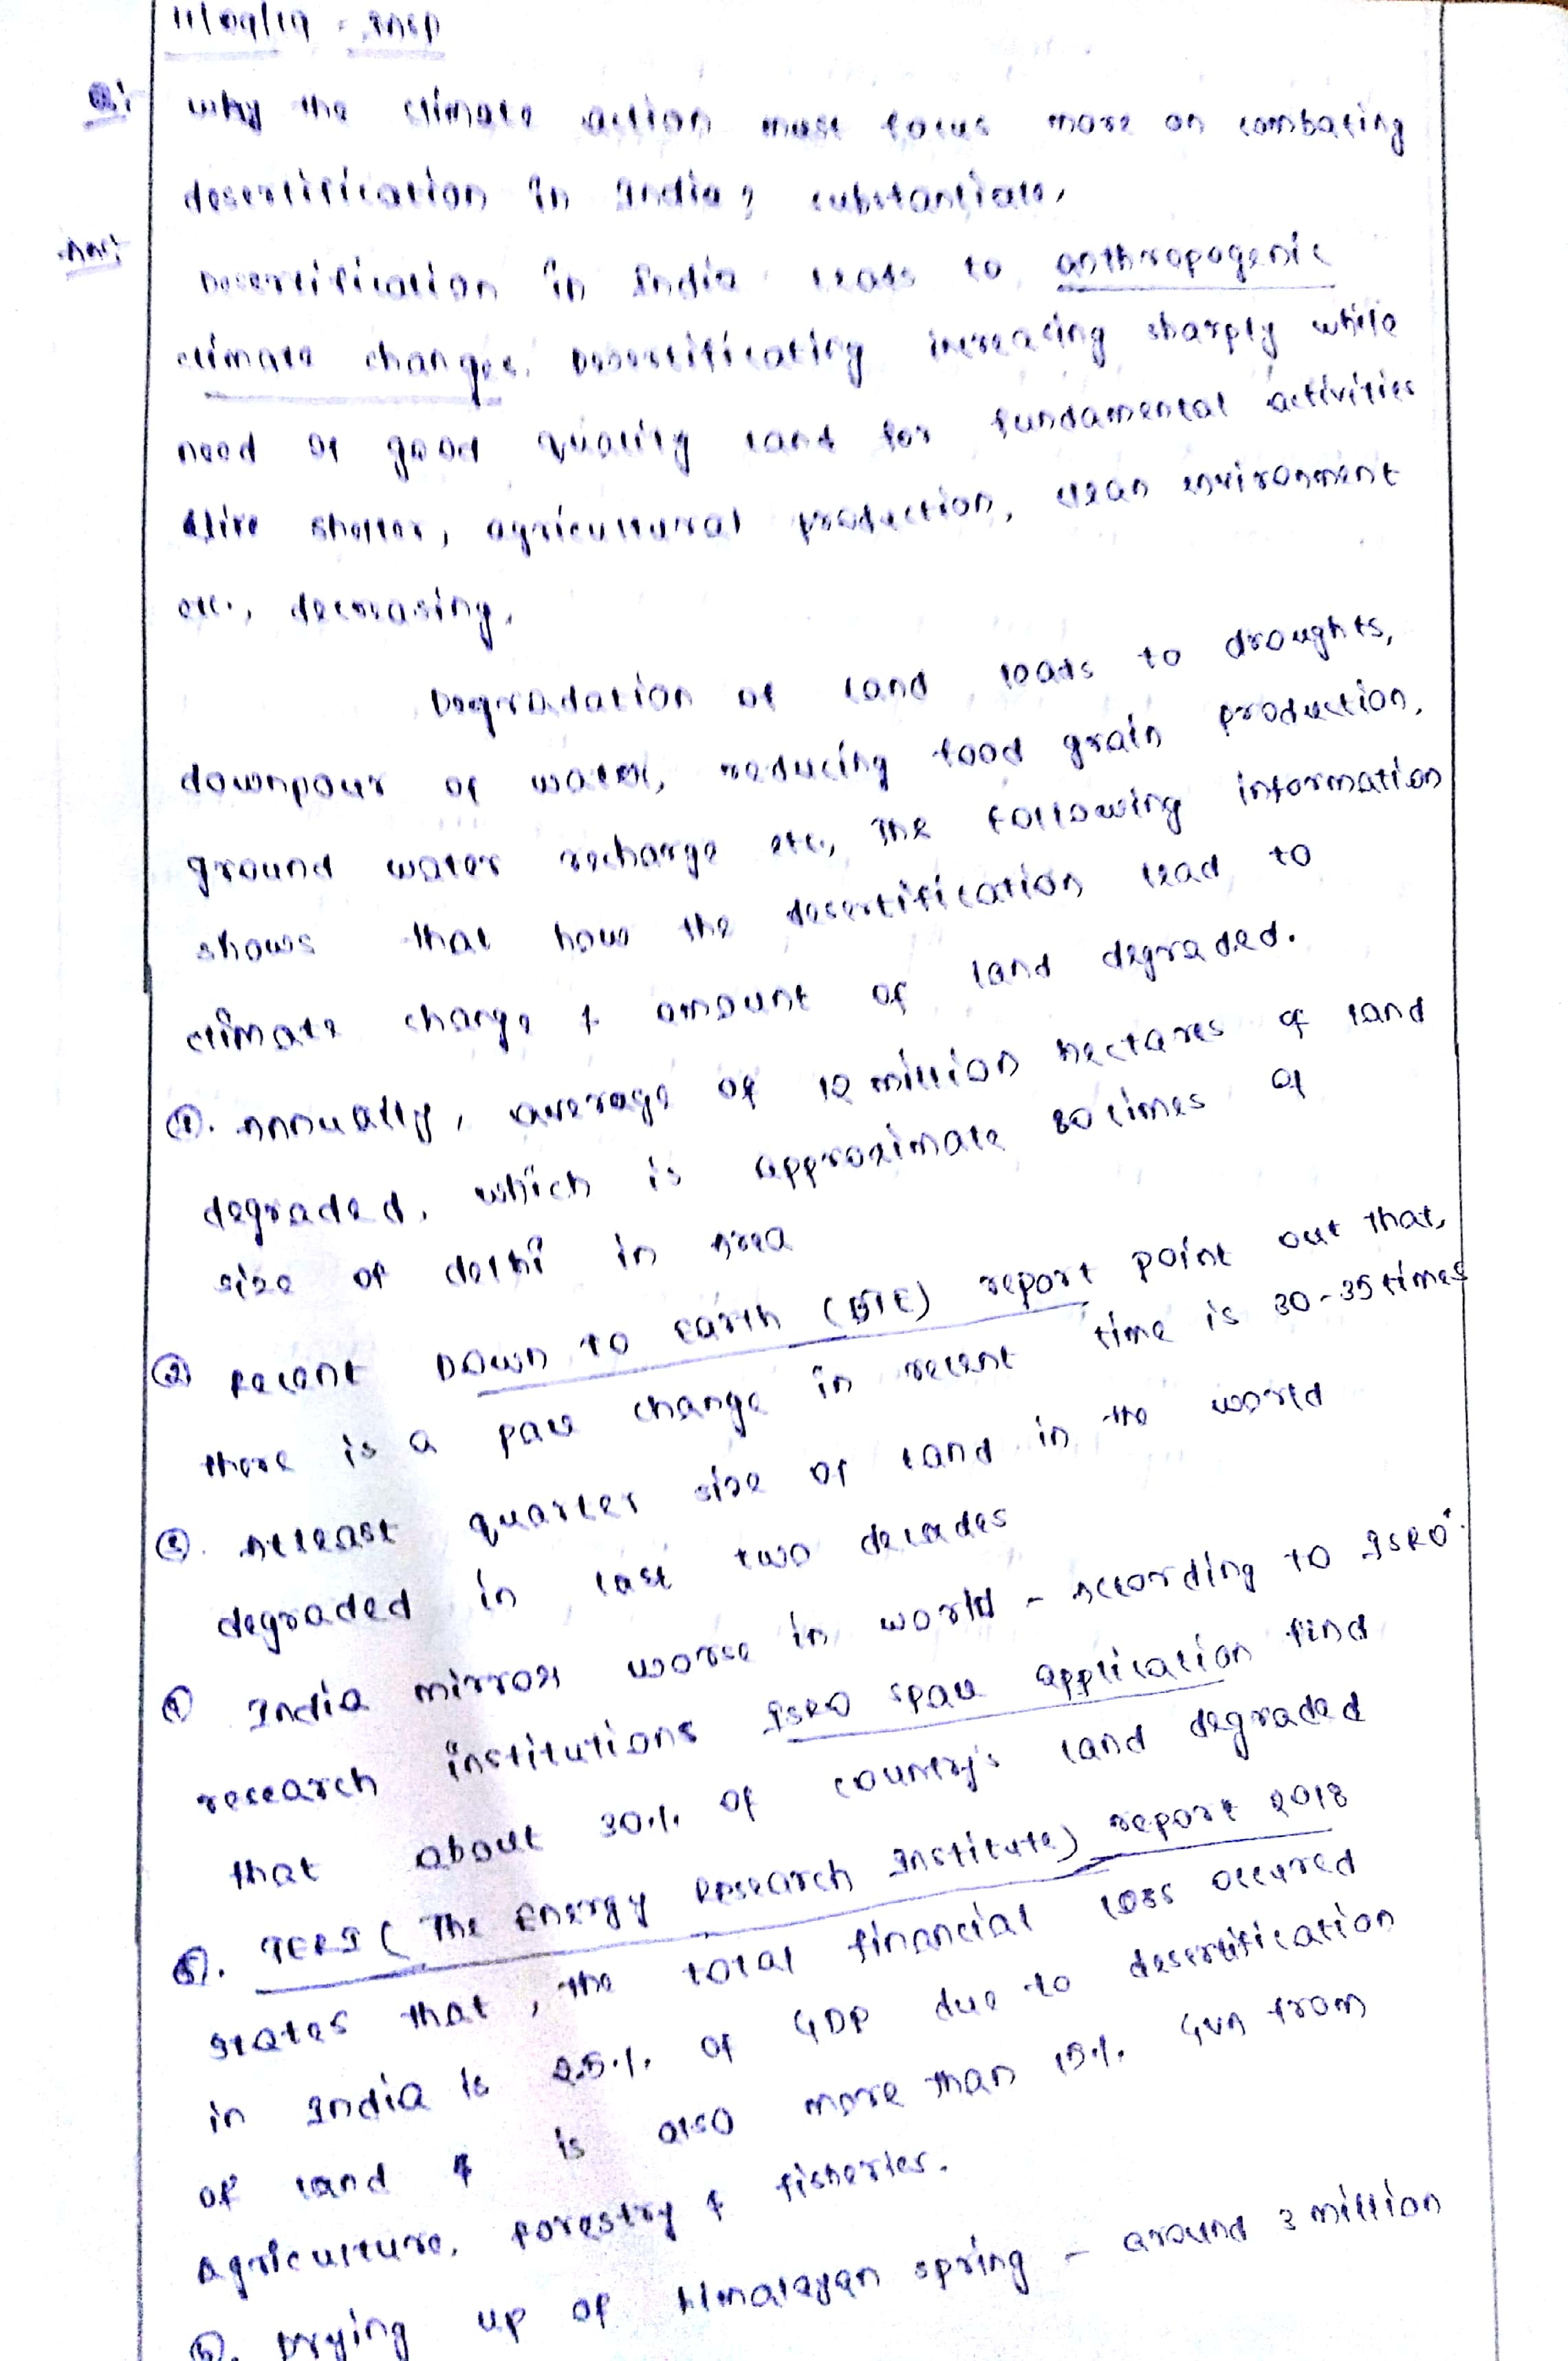 11/09/19 - INSP
Q: why the climate action must focus more on combating
desertification in India? substantiate.
Ans: Desertification in India leads to anthropogenic
climate changes. Desertificating increasing sharply while
need of good quality land for fundamental activities
like shelter, agricultural production, clean environment
etc., decreasing.
Degradation of land loads to droughts,
downpour of water, reducing food grain production,
ground water recharge etc., The following information
shows that how the desertification lead to
climate change & amount of land degraded.
①. Annually, average of 12 million hectares of land
degraded, which is approximate 80 times of
size of delhi in area
② Recent Down to Earth (DTE) report point out that,
there is a pace change in recent time is 30-35 times
③. Atleast quarter size of land in the world
degraded in last two decades
④ India mirror worse in world - According to ISRO
research institutions ISRO space application find
that about 30% of country's land degraded
⑤. TERI (The Energy Research Institute) report 2018
states that, the total financial loss occured
in India is 2.5% of GDP due to desertification
of land & is also more than 15% GVA from
Agriculture, forestry & fisheries.
⑥. Drying up of Himalayan spring - around 3 million